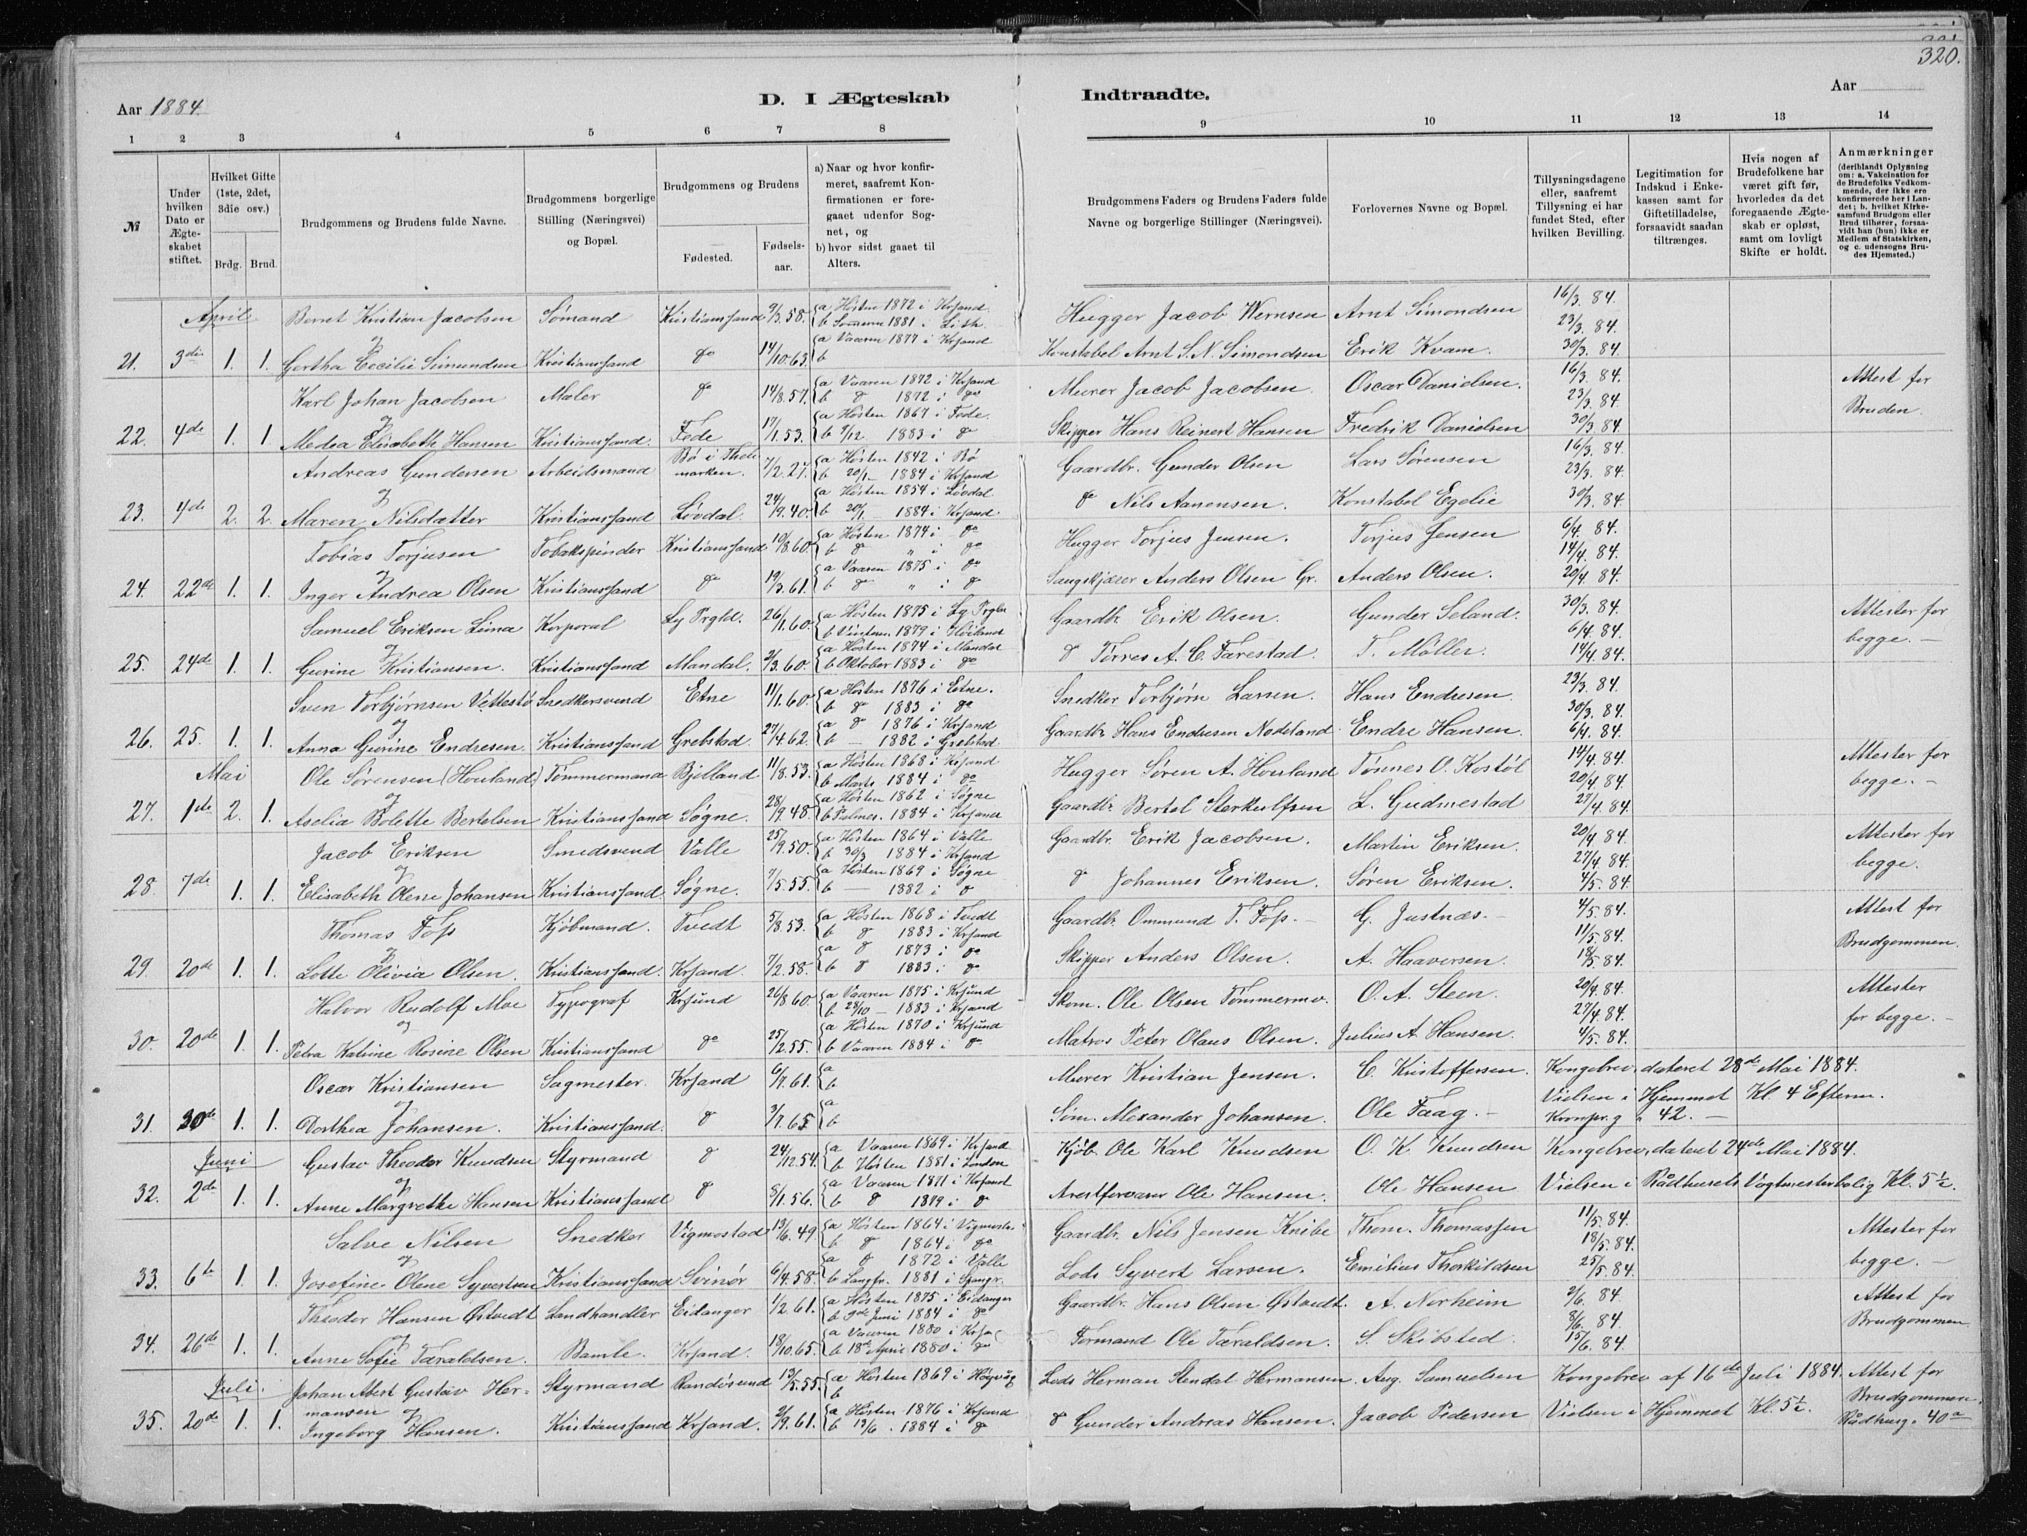 320.
Aar 1884.
D. I Ægteskab Indtraadte.
Aar
1 2 3 4 5 6 7 8 9 10 11 12 13 14
№
Under hvilken Dato er Ægteskabet stiftet.
Hvilket Gifte (1ste, 2det, 3die osv.)
Brdg. Brud.
Brudgommens og Brudens fulde Navne.
Brudgommens borgerlige Stilling (Næringsvei) og Bopæl.
Brudgommens og Brudens
Fødested. Fødselsaar.
a) Naar og hvor konfirmeret, saafremt Konfirmationen er foregaaet udenfor Sognet, og
b) hvor sidst gaaet til Alters.
Brudgommens Faders og Brudens Faders fulde Navne og borgerlige Stillinger (Næringsvei).
Forlovernes Navne og Bopæl.
Tillysningsdagene eller, saafremt Tillysning ei har fundet Sted, efter hvilken Bevilling.
Legitimation for Indskud i Enkekassen samt for Giftetilladelse, forsaavidt saadan tiltrænges.
Hvis nogen af Brudefolkene har været gift før, hvorledes da det foregaaende Ægteskab er opløst, samt om lovligt Skifte er holdt.
Anmærkninger (deriblandt Oplysning om: a. Vakcination for de Brudefolks Vedkommende, der ikke ere konfirmerede her i Landet; b. hvilket Kirkesamfund Brudgom eller Brud tilhører, forsaavidt han (hun) ikke er Medlem af Statskirken, og c. udensogns Brudes Hjemsted.)
April Bernt Kristian Jacobsen Sømand Kristianssand 9/3.58. a Høsten 1872 i Krsand b Sommern 1881 i Lish Hugger Jacob Wernsen Arnt Simondsen 16/3.84. 23/3.84.
21. 3die 1. 1. og Gertha Cecilie Simundsen Kristianssand do 14/10.63. a Vaaren 1877 i Krsand b Konstabel Arnt S. N. Simondsen Erik Kvam. 30/3.84.
Karl Johan Jacobsen Maler do 14/8.57. a Vaaren 1872 i Krsand b do 1872 i do Murer Jacob Jacobsen. Oscar Danielsen. 16/3.84. 23/3.84. Attest for
22. 4de 1. 1. og Medea Elisabeth Hansen Kristianssand. Fede 17/1.53. a Høsten 1867 i Fede. b 9/12 1883 i do Skipper Hans Reinert Hansen Fredrik Danielsen 30/3.84. Bruden.
Andreas Gundersen Arbeidsmand Bø i Thelemarken. 7/2.27. a Høsten 1842 i Bø b 20/1 1884 i Krsand Gaardbr. Gunder Olsen Lars Sørensen 16/3.84. 23/3.84.
23. 4de 2. 2. og Maren Nilsdatter Kristianssand Løvdal. 24/9.40. a Høsten 1854 i Løvdal b 20/1 1884 i Krsand. do Nils Aanensen. Konstabel Egelie 30/3.84.
Tobias Torjusen Tobakspinder Kristianssand 10/8.60. a Høsten 1874 i do b do " i do Hugger Torjus Jensen. Torjus Jensen 6/4.84. 14/4.84.
24. 22de 1. 1. og Inger Andrea Olsen Kristianssand do 19/3.61. a Vaaren 1875 i do b do " i do Saugskjærer Anders Olsen Gr. Anders Olsen. 20/4.84.
Samuel Eriksen Korporal Ly Prgld. 26/1.60. a Høsten 1875 i Ly Prgld b Vinteren 1879 i Gaardbr Erik Olsen. Gunder Seland. 30/3.84. 6/4.84. Attester for
25. 24de 1. 1. og Gurine Kristiansen. Kristianssand Mandal. 2/3.60. a Høsten 1874 i Mandal b Oktober 1883 i do do Tørres A. C. Farestad. T. Møller. 14/4.84. begge.
Sven Torbjørnsen Vettestø Snedkersvend Etne 11/1.60. a Høsten 1876 i Etne. b do 1883 i do Snedker Torbjørn Larsen. Hans Endresen. 23/3.84. 30/3.84.
26. 25. 1. 1. og Anna Gurine Endresen. Kristianssand Grebstad. 27/4.62. a do 1876 i Krsand b 1882 i Grebstad. Gaardbr Hans Endresen Nodeland. Endre Hansen. 6/4.84.
Mai Ole Sørensen (Houland) Tømmermand Bjelland. 11/8.53. a Høsten 1868 i Krsand b Marts 1884 i do Hugger Søren A. Houland Tønnes O. Kostøl 14/4.84. 20/4.84. Attester for
27. 1ste 2. 1. og Aselia Bolette Bertelsen Kristianssand Søgne. 28/9.48. a Høsten 1862 i Søgne b Palmes. 1884 i Krsand Gaardbr Bertel Sterkulfsen L. Gudmestad 27/4.84. begge.
Jacob Eriksen Smedsvend Valle 25/9.50. a Høsten 1864 i Valle b 30/3 1884 i Krsand Gaardbr. Erik Jacobsen Martin Eriksen. 20/4.84. 27/4.84. Attester for
28. 7de 1. 1. og Elisabeth Olene Johansen Kristianssand Søgne. 7/5.55. a Høsten 1869 i Søgne b 1882 i do do Johannes Eriksen. Søren Eriksen. 4/5.84. begge.
Thomas Foss Kjøbmand. Tvedt 5/8.53. a Høsten 1868 i Tvedt b do 1883 i Krsand Gaardbr. Ommund T. Foss. G. Justnæs. 4/5.84. 11/5.84. Attest for
29. 20de 1. 1. og Lotte Olivia Olsen. Kristianssand. Krsand. 7/2.58. a do 1873 i do b do 1883. i do Skipper Anders Olsen. A. Haaversen. 18/5.84. Brudgommen.
Halvor Rudolf Moe Typograf Krsund 26/8.60. a Vaaren 1875 i Krsund b 28/10 1883 i Krsand Skom. Ole Olsen Tømmermo. O. A. Steen. 20/4.84. 27/4.84. Attester
30. 20de 1. 1. og Petra Katrine Rosine Olsen Kristianssand do 25/2.55. a Høsten 1870 i Krsund b Vaaren 1884 i do Matros Peter Olaus Olsen. Julius A. Hansen. 4/5.84. for begge.
Oscar Kristiansen Sagmester. Krsand 6/7.61. a b Murer Kristian Jensen. C. Kristoffersen. Kongebrev, dateret 28de Mai 1884.
31. 30de 1. 1. og Dorthea Johansen. Kristianssand. do 3/7.65 a b Søm. Alexander Johansen. Ole Faag. Vielsen i Hjemmet Kl 4 Efterm. 42.
Juni Gustav Theodor Knudsen Styrmand do 24/12.54. a Vaaren 1869 i Krsand b Høsten 1881 i London Kjøb. Ole Karl Knudsen O. K. Knudsen Kongebrev, dateret 24de Mai 1884.
32. 2de 1. 1. og Anne Margrethe Hansen Kristianssand do 8/1.56. a Vaaren 1871 i Krsand b do 1879 i do Arestforvarer Ole Hansen. Ole Hansen Vielsen i Rådhusets Vagtmesterbolig Kl. 5½.
Salve Nilsen Snedker Vigmostad 13/6.49 a Høsten 1864 i Vigmostad b do 1864 i do Gaardbr. Nils Jensen Knibe Thom. Thomassen 11/5.84. 18/5.84. Attester for
33. 6te 1. 1. og Josefine Olene Syvertsen Kristianssand Svinør. 6/4.58. a do 1872 i Valle b Langfr. 1881 i Spangr. Lods Syvert Larsen. Emilius Thorkildsen 25/5.84. begge.
Theodor Hansen Østvedt Landhandler Eidanger 1/2.61. a Høsten 1875 i Eidanger b 3de Juni 1884 i do Gaardbr. Hans Olsen Østvedt. A. Norheim 2/6.84. 8/6.84. Attest for
34. 26de 1. 1. og Anne Sofie Taraldsen. Bamle. Krsand. 18/10.65. a Vaaren 1880 i Krsa b 18de April 1880 i do Formand Ole Taraldsen. S. Skibsted. 15/6.84. Brudgommen
Juli. Johan Albert Gustav Hermansen Styrmand Randøsund 13/5.55. a Høsten 1869 i Høgvåg b Lods Herman Stendal Hermansen. Aug. Samuelsen Kongebrev af 16de Juli 1884. Attest for Brudgommen.
35. 20de 1. 1. og Ingeborg Hansen. Kristianssand Krsand. 2/9.61. a Høsten 1876 i Krsand b 13/6. 1884 i do do Gunder Andreas Hansen. Jacob Pedersen Vielsen i Hjemmet Kl. 5½. Rådhusg. 40a